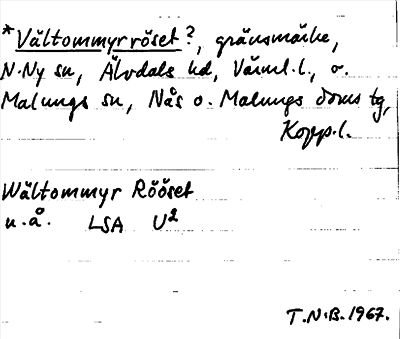 *Vältommyrröset?, gränsmärke,
N.Ny sn, Älvdals hd, Värml.l., o.
Malungs sn, Nås o. Malungs doms tg,
Kopp.l.
Wältommyr Rööset
u.å. LSA U²
T.N.B. 1967.